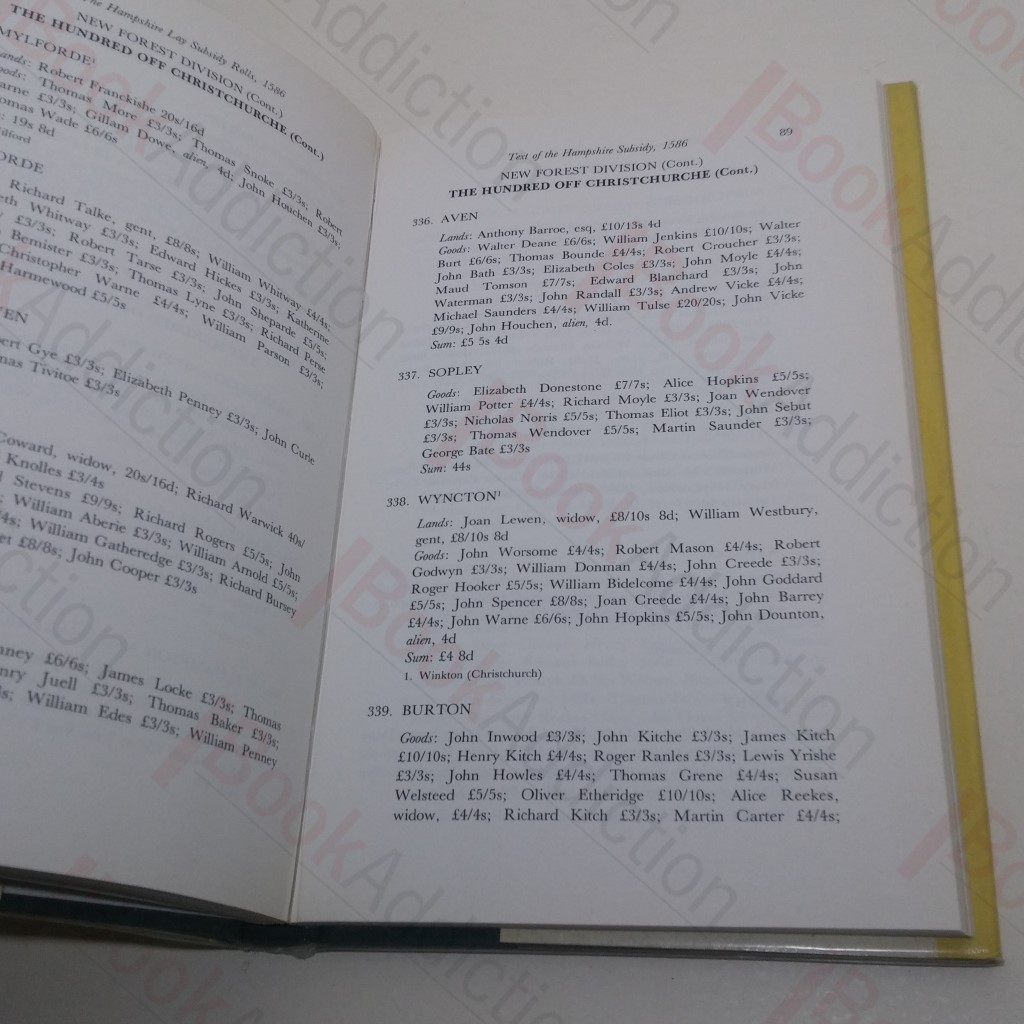 The Hampshire Lay Subsidy Rolls, 1586
NEW FOREST DIVISION (Cont.)
THE HUNDRED OFF CHRISTCHURCHE (Cont.)
MYLFORDE¹
Robert Franckishe 20s/16d
Thomas More £3/3s; Thomas Snoke £3/3s; Robert
£3/3s; Gillam Dowe, alien, 4d; John Houchen £3/3s;
Wade £6/6s
19s 8d
Richard Talke, gent, £8/8s; William Whitway £4/4s;
Whitway £3/3s; Edward Hickes £3/3s; Katherine
£3/3s; Robert Tarse £3/3s; John Sheparde £5/5s;
Bemister £3/3s; Thomas Lyne £3/3s; Richard Perse
Christopher Warne £4/4s; William Parson £3/3s;
Harmewood £5/5s
Gye £3/3s; Elizabeth Penney £3/3s; John Curle
Tivitoe £3/3s
Coward, widow, 20s/16d; Richard Warwick 40s/
Knolles £3/4s
Stevens £9/9s; Richard Rogers £5/5s; John
William Aberie £3/3s; William Arnold £5/5s;
William Gatheredge £3/3s; Richard Bursey
£8/8s; John Cooper £3/3s
£6/6s; James Locke £3/3s; Thomas
Juell £3/3s; Thomas Baker £3/3s;
William Edes £3/3s; William Penney
89
Text of the Hampshire Subsidy, 1586
NEW FOREST DIVISION (Cont.)
THE HUNDRED OFF CHRISTCHURCHE (Cont.)
336. AVEN
Lands: Anthony Barroe, esq, £10/13s 4d
Goods: Walter Deane £6/6s; William Jenkins £10/10s; Walter
Burt £6/6s; Thomas Bounde £4/4s; Robert Croucher £3/3s;
John Bath £3/3s; Elizabeth Coles £3/3s; John Moyle £4/4s;
Maud Tomson £7/7s; Edward Blanchard £3/3s; John
Waterman £3/3s; John Randall £3/3s; Andrew Vicke £4/4s;
Michael Saunders £4/4s; William Tulse £20/20s; John Vicke
£9/9s; John Houchen, alien, 4d.
Sum: £5 5s 4d
337. SOPLEY
Goods: Elizabeth Donestone £7/7s; Alice Hopkins £5/5s;
William Potter £4/4s; Richard Moyle £3/3s; Joan Wendover
£3/3s; Nicholas Norris £5/5s; Thomas Eliot £3/3s; John Sebut
£3/3s; Thomas Wendover £5/5s; Martin Saunder £3/3s;
George Bate £3/3s
Sum: 44s
338. WYNCTON¹
Lands: Joan Lewen, widow, £8/10s 8d; William Westbury,
gent, £8/10s 8d
Goods: John Worsome £4/4s; Robert Mason £4/4s; Robert
Godwyn £3/3s; William Donman £4/4s; John Creede £3/3s;
Roger Hooker £5/5s; William Bidelcome £4/4s; John Goddard
£5/5s; John Spencer £8/8s; Joan Creede £4/4s; John Barrey
£4/4s; John Warne £6/6s; John Hopkins £5/5s; John Dounton,
alien, 4d
Sum: £4 8d
1. Winkton (Christchurch)
339. BURTON
Goods: John Inwood £3/3s; John Kitche £3/3s; James Kitch
£10/10s; Henry Kitch £4/4s; Roger Ranles £3/3s; Lewis Yrishe
£3/3s; John Howles £4/4s; Thomas Grene £4/4s; Susan
Welsteed £5/5s; Oliver Etheridge £10/10s; Alice Reekes,
widow, £4/4s; Richard Kitch £3/3s; Martin Carter £4/4s;
BookAddiction